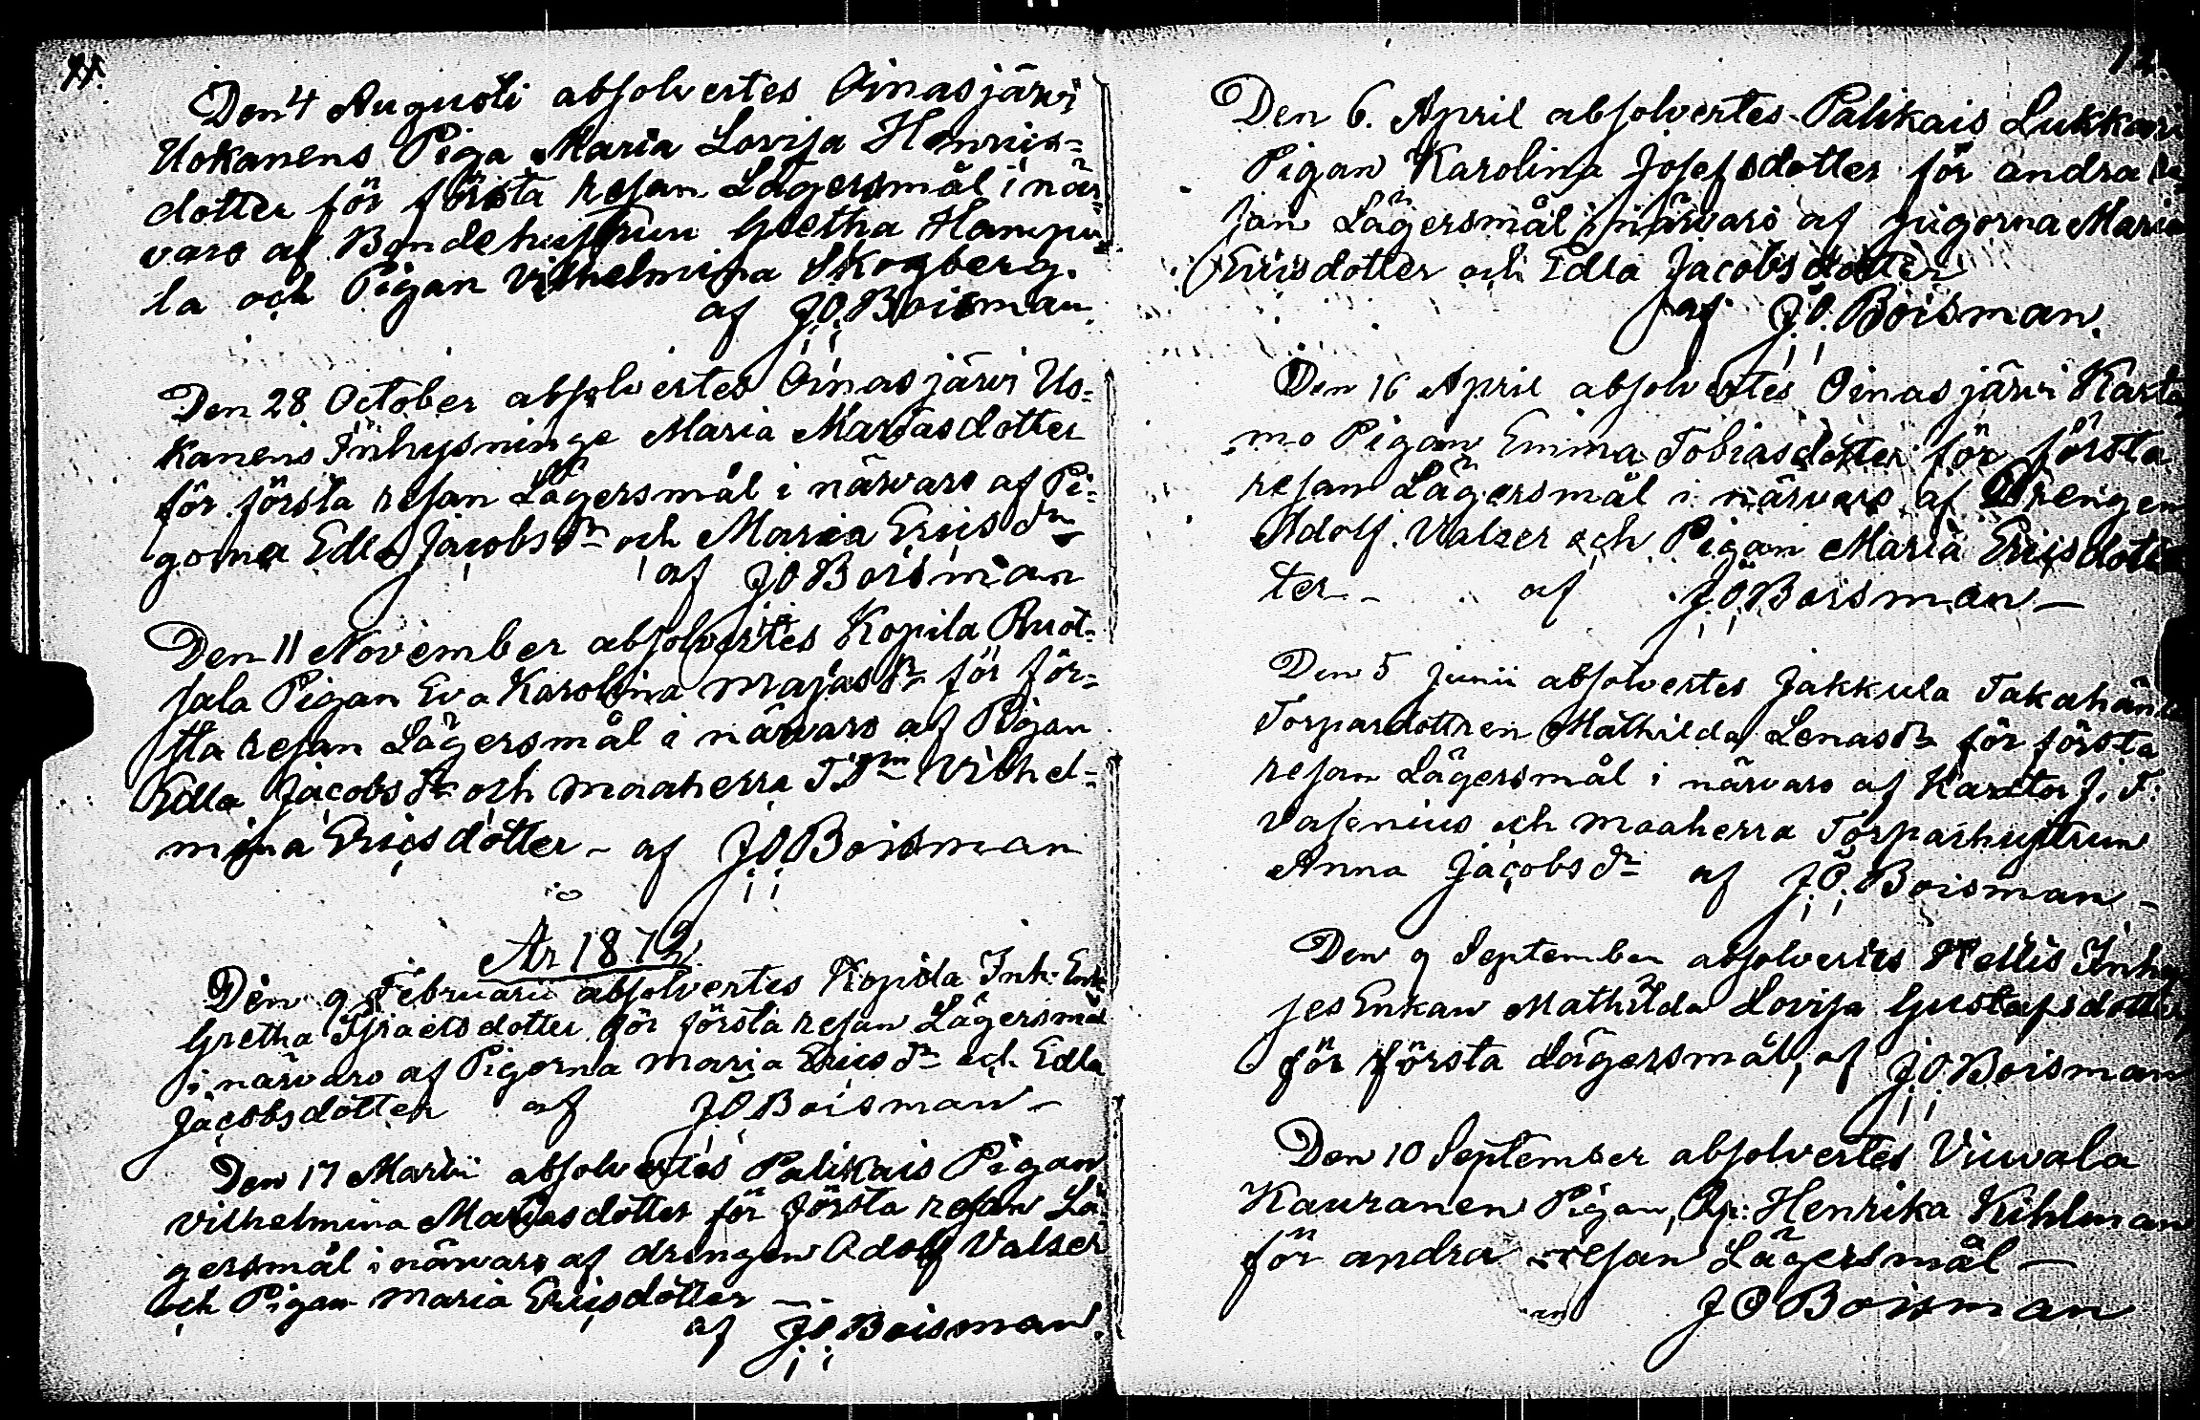 11.
Den 4 Augusti absolvertes Oinasjärvi
Uokanens Piga Maria Lovisa Henrics=
dotter för första resan Lägersmål i när=
varo af Bondehustrun Gretha Hampu=
la och Pigan Vilhelmina Skogberg.
af J.O. Boisman.
Den 28 October absolvertes Oinasjärvi Uo=
kanens Inhysninge Maria Mariasdotter
för första resan Lägersmål i närvaro af Pi=
gorna Edla Jacobsdr och Maria Ericsdr
af J O Boisman
Den 11 November absolvertes Kopila Ruot=
sala Pigan Eva Karolina Majasdr för för=
sta resan Lägersmål i närvaro af Pigan
Edla Jacobsdr och Maaherra Vilhel=
mina Ericsdotter - af J.O. Boisman
År 1872
Den 9 Februarii absolvertes Kopila Inh. Enk.
Gretha Israelsdotter för första resan Lägersmål
i närvaro af Pigorna Maria Ericsdr och Edla
Jacobsdotter af J O Boisman -
Den 17 Martii absolvertes Palikais Pigan
Vilhelmina Mariasdotter för första resan Lä=
gersmål i närvaro af drengen Adolf Valser
och Pigan Maria Ericsdotter -
af J.O. Boisman.
12.
Den 6. April absolvertes Palikais Lukkari
Pigan Karolina Josefsdotter för andra re=
san Lägersmål i närvaro af pigorna Maria
Ericsdotter och Edla Jacobsdotter
af J.O. Boisman.
Den 16 April absolvertes Oinasjärvi Karta
mo Pigan Emma Tobiasdotter för första
resan Lägersmål i närvaro af Drengen
Adolf Valser och Pigan Maria Ericsdott
ter - af J.O. Boisman -
Den 5 Junii absolvertes Jakkula Takahän
Torpardottren Mathilda Lenasdr för första
resan Lägersmål i närvaro af Kantor J. F.
Vasenius och Maaherra Torparhustrun
Anna Jacobsdr af J.O. Boisman -
Den 9 September absolvertes Kellis Inhy
ses Enkan Mathilda Lovisa Gustafsdotter
för första Lägersmål, af J.O. Boisman
Den 10 September absolvertes Viuvala
Kauranen Pigan, Henrika Kihlman
för andra resan Lägersmål -
J O Boisman